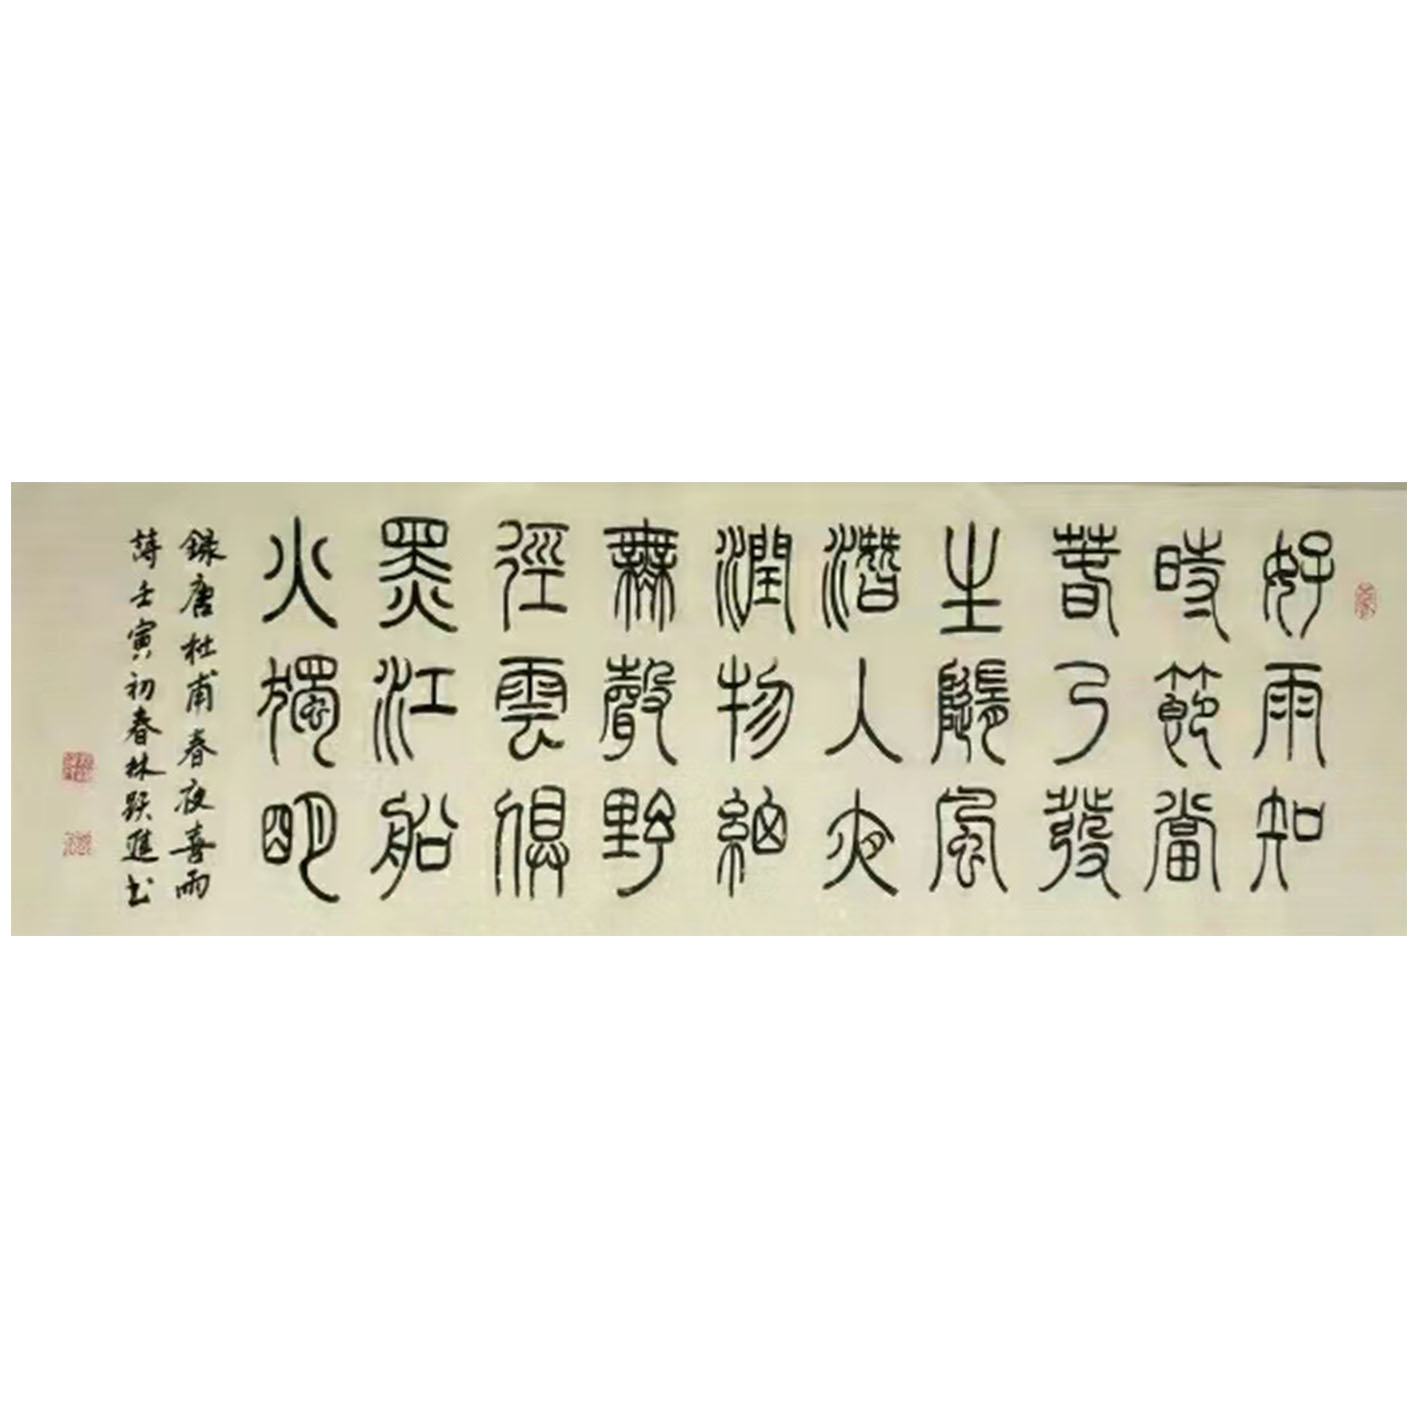 好雨知
時節當
春乃發
生隨風
潛入夜
潤物細
無聲野
徑雲俱
黑江船
火獨明
録唐杜甫春夜喜雨
詩壬寅初春林躍進书